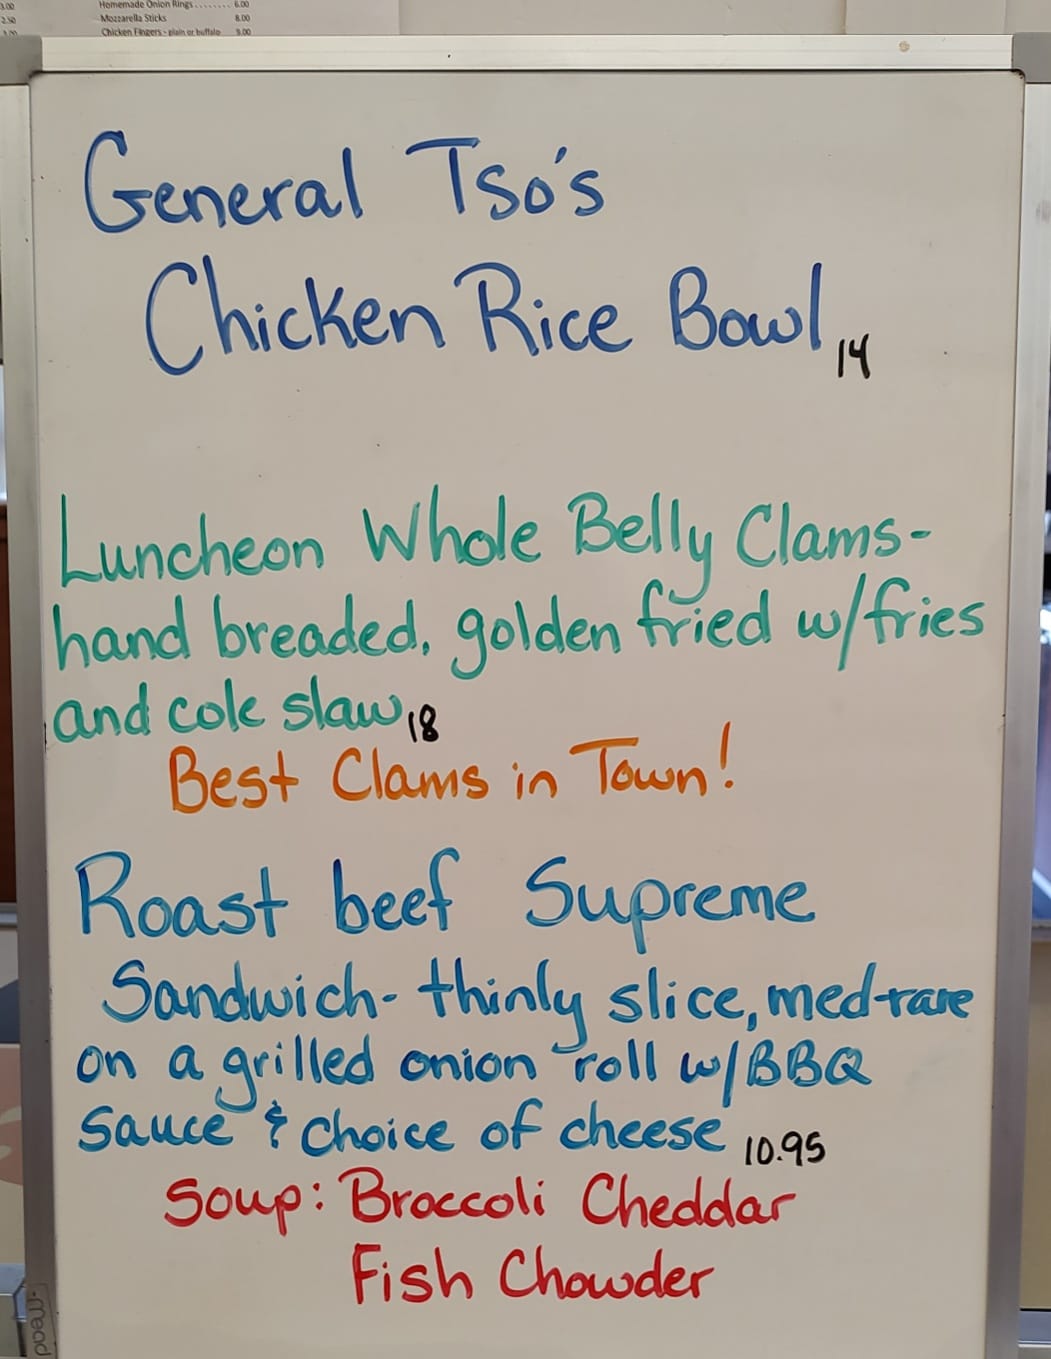 3.00 Homemade Onion Rings ........ 6.00
2.50 Mozzarella Sticks 8.00
Chicken Fingers - plain or buffalo 9.00
General Tso's
Chicken Rice Bowl 14
Luncheon Whole Belly Clams-
hand breaded, golden fried w/fries
and cole slaw 18
Best Clams in Town!
Roast beef Supreme
Sandwich- thinly slice, med-rare
on a grilled onion roll w/BBQ
Sauce & choice of cheese 10.95
Soup: Broccoli Cheddar
Fish Chowder
mead